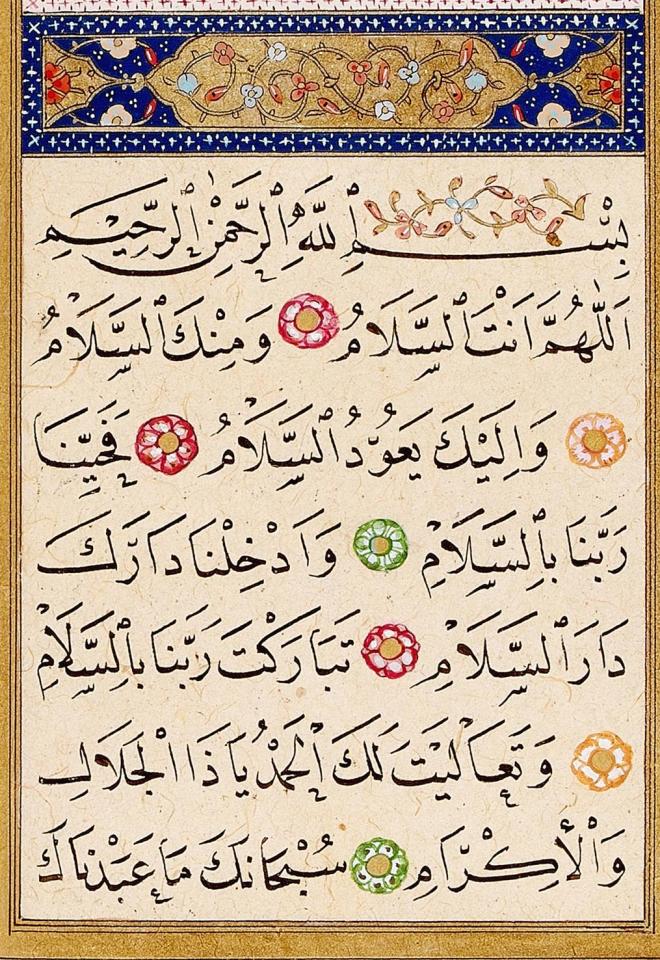 بِسْمِ اللّٰهِ الرَّحْمٰنِ الرَّحِيمِ
اَللّٰهُمَّ اَنْتَ السَّلَامُ وَمِنْكَ السَّلَامُ
وَاِلَيْكَ يَعُوْدُ السَّلَامُ فَحَيِّنَا
رَبَّنَا بِالسَّلَامِ وَاَدْخِلْنَا دَارَكَ
دَارَ السَّلَامِ تَبَارَكْتَ رَبَّنَا بِالسَّلَامِ
وَتَعَالَيْتَ لَكَ الْحَمْدُ يَا ذَا الْجَلَالِ
وَالْاِكْرَامِ سُبْحَانَكَ مَا عَبَدْنَاكَ